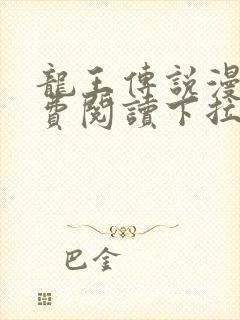 龍王傳說漫
費閱讀下拉
巴金